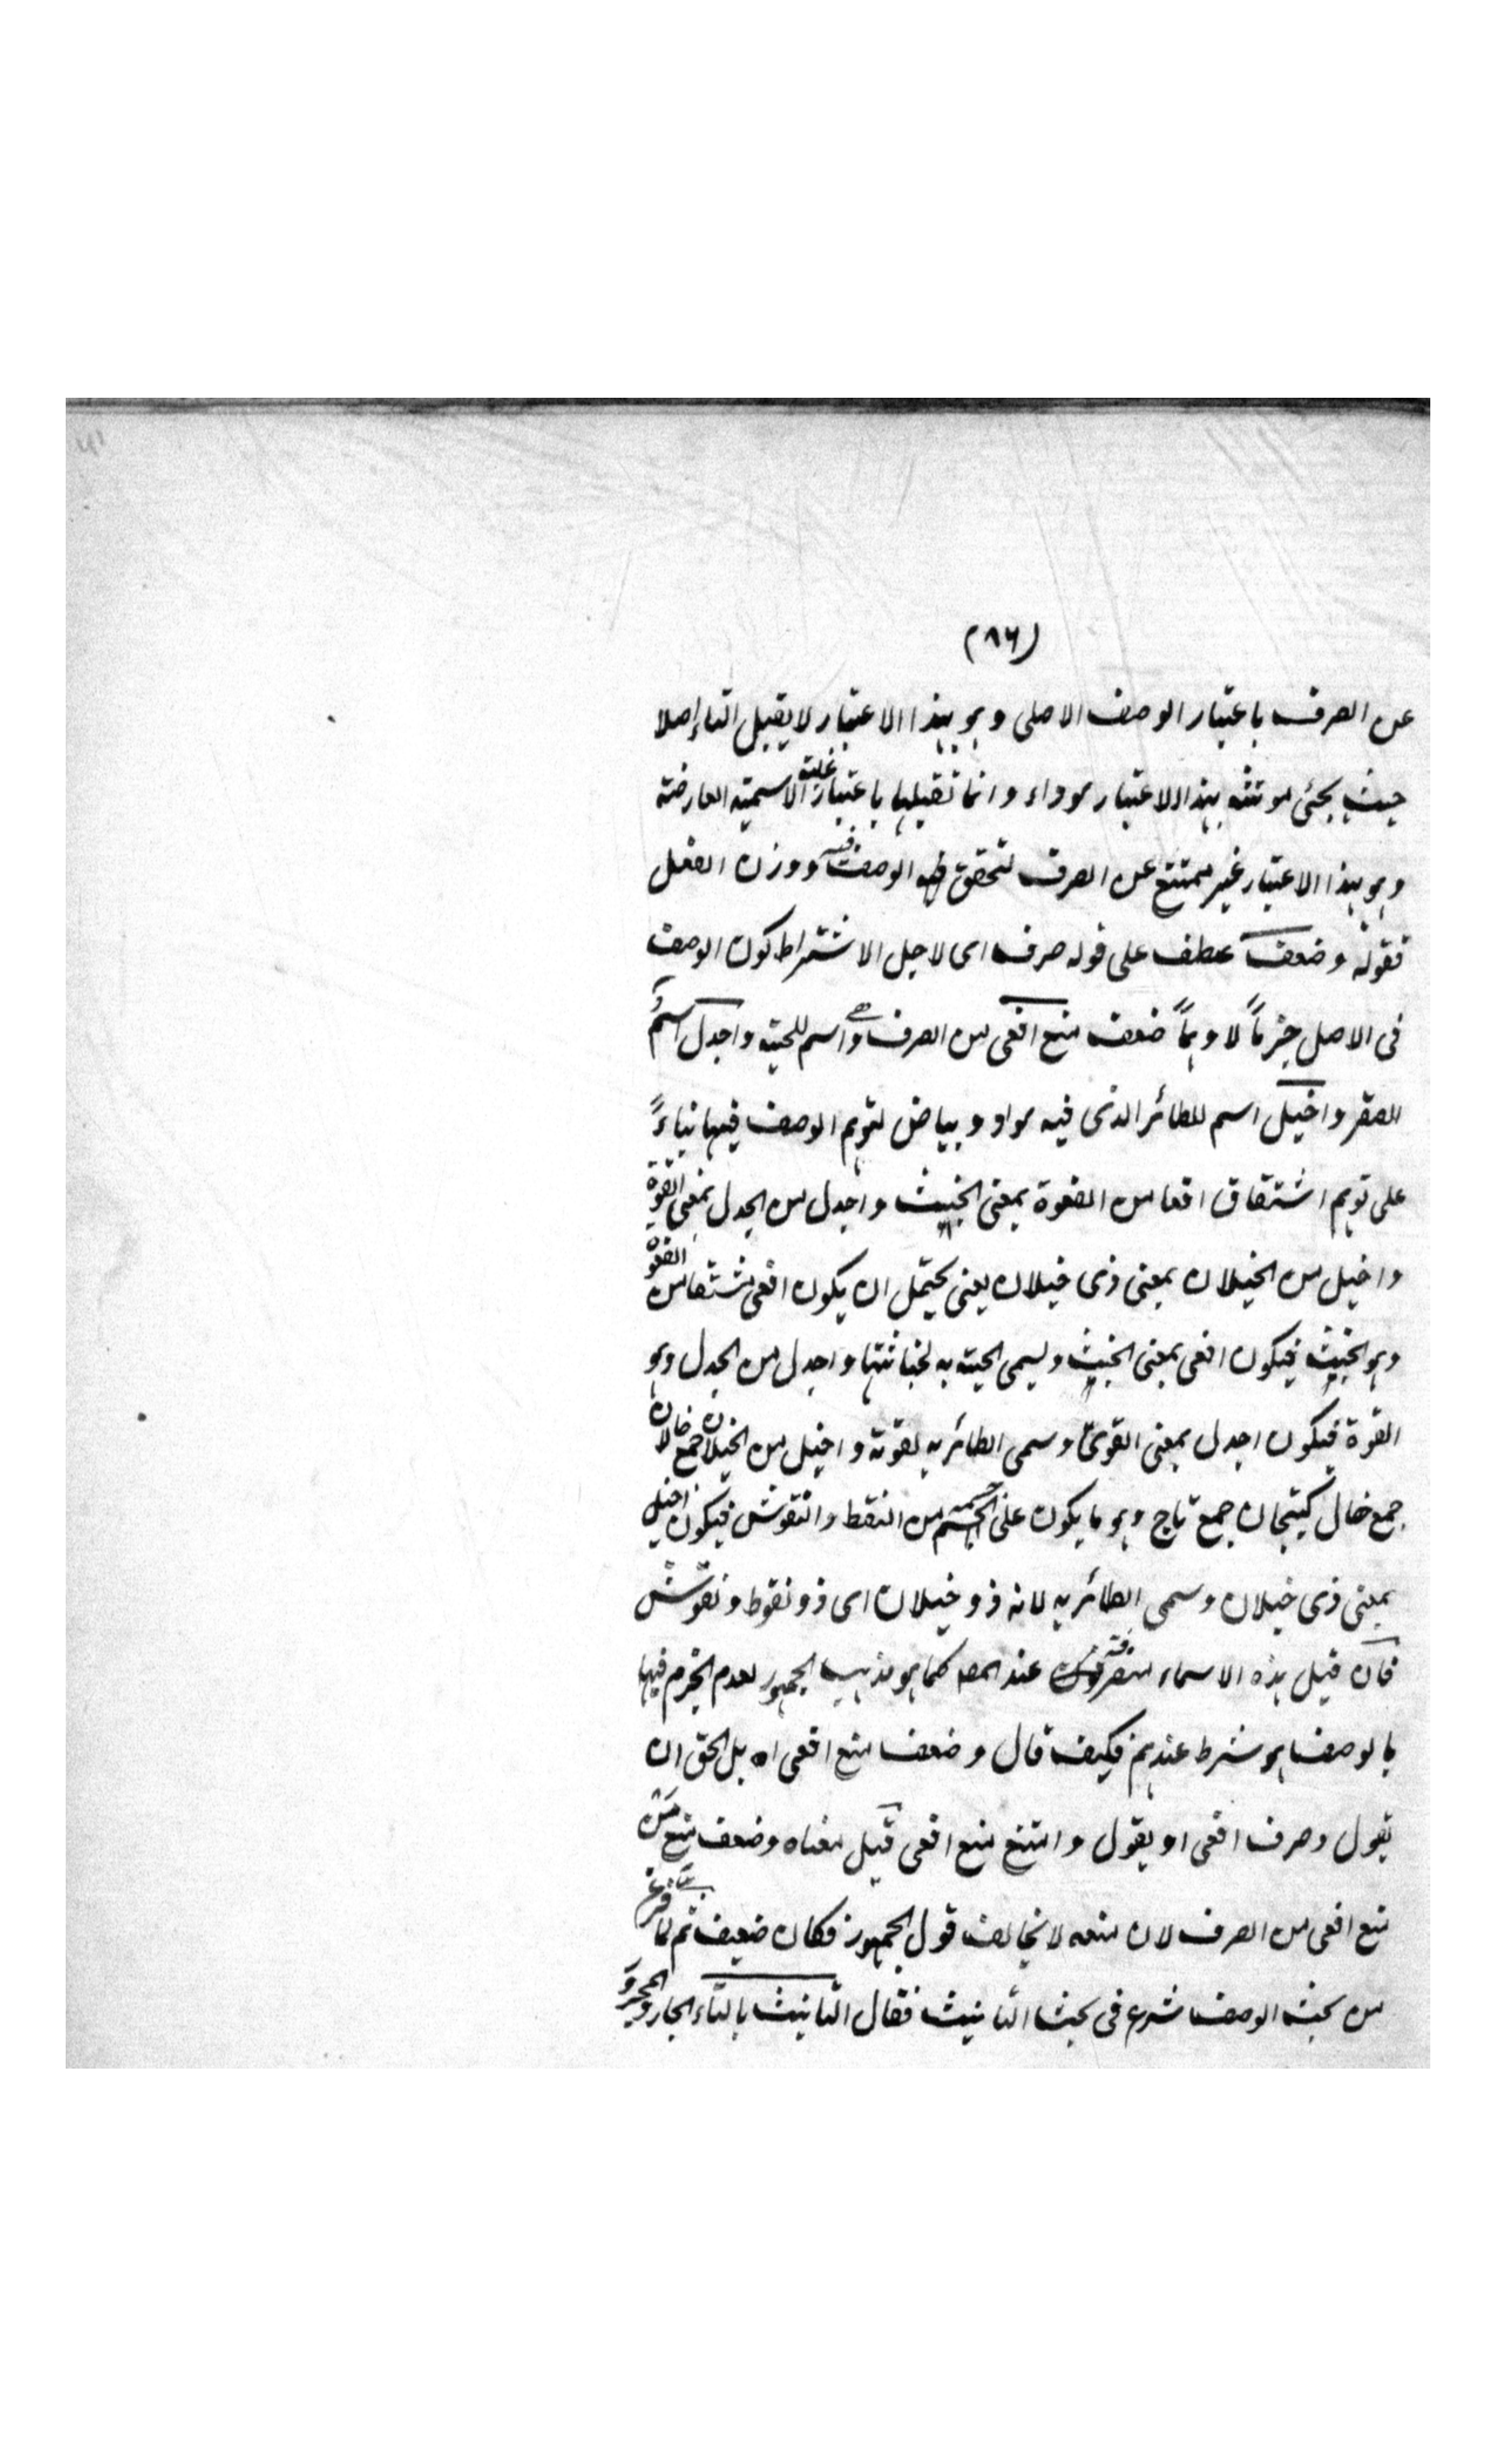 (٨٦)
عن الصرف باعتبار الوصف الاصلى وهو بهذا الاعتبار لا يقبل التاء اصلا
حيث يجئى مونثه بهذا الاعتبار سوداء وانما تقبلها باعتبار غلبة الاسمية العارضة
وهو بهذا الاعتبار غير ممتنع عن الصرف لتحقق الوصف فيه ووزن الفعل
فقوله وضعف عطف على قوله صرف اى لاجل الاشتراط كون الوصف
فى الاصل جزماً لا وهماً ضعف منع افعى من الصرف وهى اسم للحية واجدل اسم
الصقر واخيل اسم للطائر الذى فيه سواد وبياض لتوهم الوصف فيها بناءً
على توهم اشتقاق افعا من الفعوة بمعنى الخبيث واجدل من الجدل بمعنى القوة
واخيل من الخيلان بمعنى ذى خيلان يعنى يحتمل ان يكون افعى مشتقا من الفعوة
وهو الخبيث فيكون افعى بمعنى الخبيث ويسمى الحية به لخباثتها واجدل من الجدل وهو
القوة فيكون اجدل بمعنى القوى وسمى الطائر به لقوته واخيل من الخيلان جمع خال لان
جمع خال كتيجان جمع تاج وهو ما يكون على الجسم من النقط والنقوش فيكون اخيل
بمعنى ذى خيلان وسمى الطائر به لانه ذو خيلان اى ذو نقوط ونقوش
فان قيل هذه الاسماء منصرفة عند المصـ كما هو مذهب الجمهور لعدم الجزم فيها
بالوصف هو شرط عندهم فكيف قال وضعف منع افعى اه بل الحق ان
يقول وصرف افعى او يقول وامتنع منع افعى قيل معناه وضعف منع من
منع افعى من الصرف لان منعه لا يخالف قول الجمهور فكان ضعيف ثم لما فرغ
من بحث الوصف شرع فى بحث التانيث فقال التانيث بالتاء الجار والمجرور